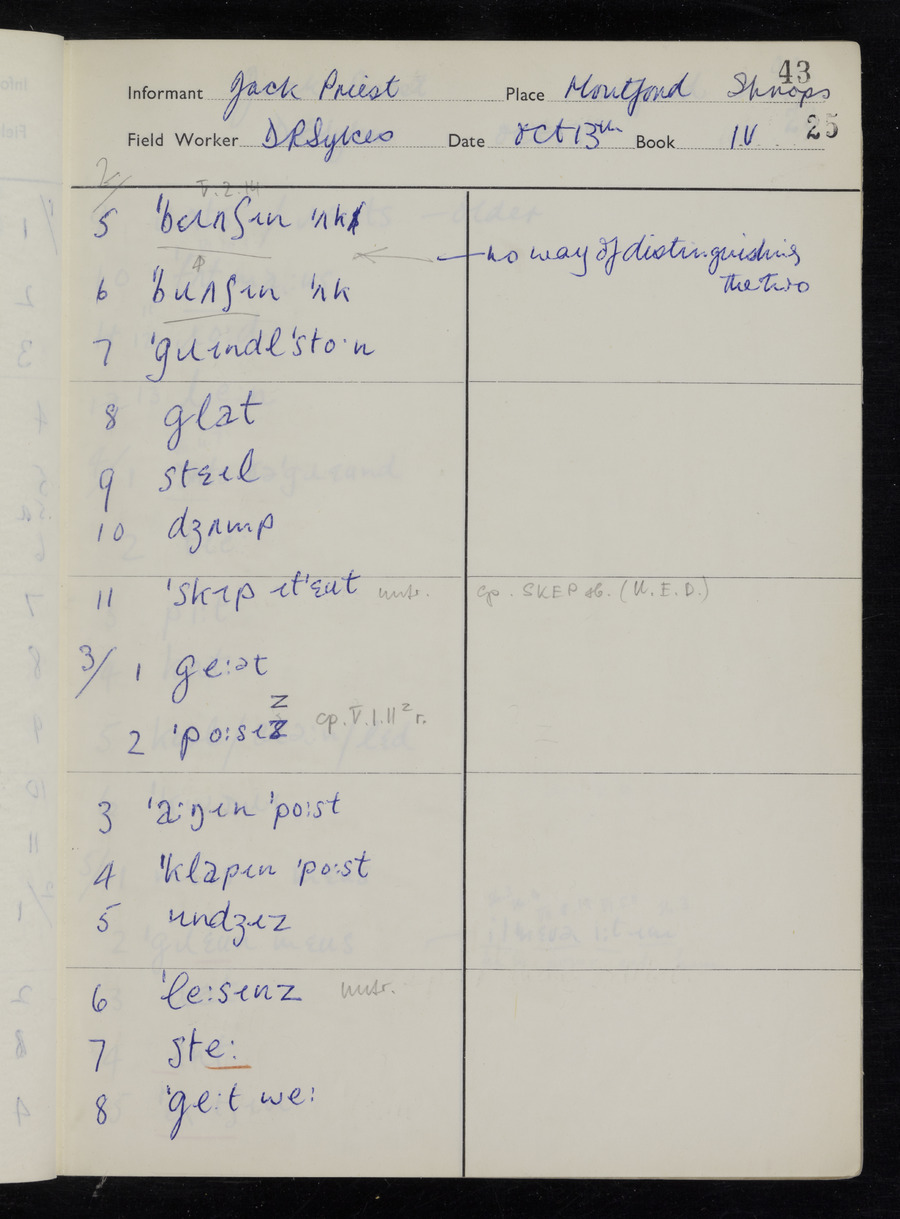 43
Informant Jack Priest Place Montford Shrops
Field Worker D R Sykes Date Oct 13th Book IV 25
2/
V.2.14
5 ˈbɹʌʃɪn ˈʌk
no way of distinguishing
the two
6 ˈbɹʌʃɪn ˈʌk
7 ˈgɹɪndlˈsto·n
8 glat
9 stɛɪl
10 dʒʌmp
11 ˈskɪp ɪtˈɛʊt cp. SKEP sb. (N.E.D.)
3/ 1 ge:ət
2 ˈpo:sɪz z cp. V.1.11² r.
3 ˈaˑŋɪn ˈpo:st
4 ˈklapɪn ˈpo:st
5 ɪndʒɪz
6 ˈle:sɪnz
7 ste:
8 ˈge:t we: